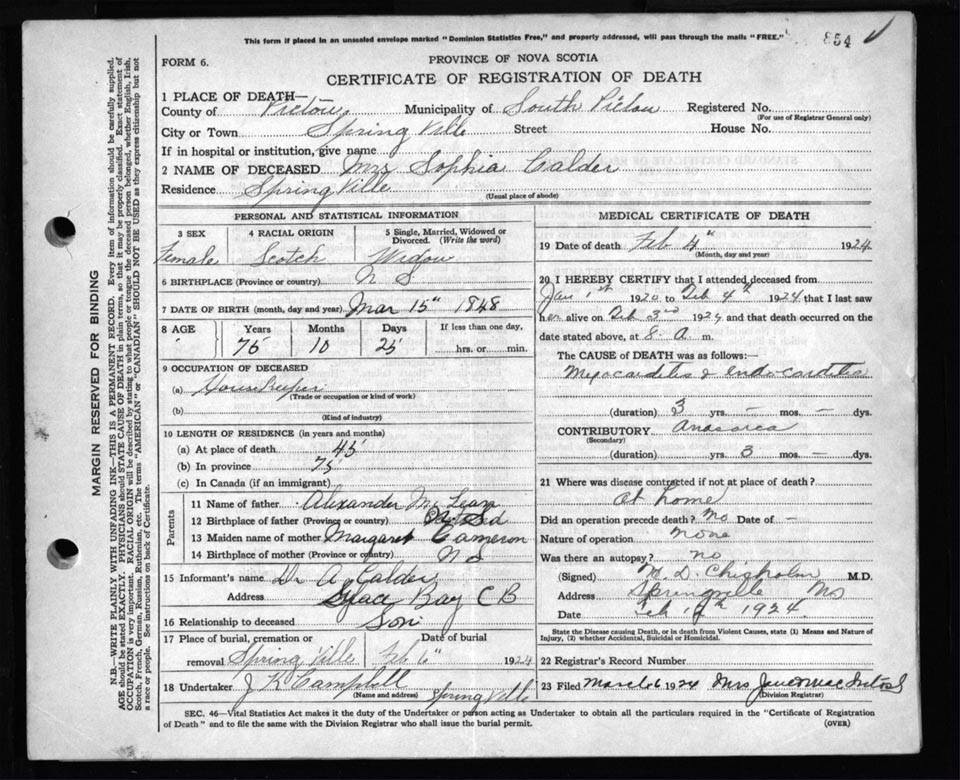 This form if placed in an unsealed envelope marked "Dominion Statistics Free," and properly addressed, will pass through the mails "FREE."
854
FORM 6.
PROVINCE OF NOVA SCOTIA
CERTIFICATE OF REGISTRATION OF DEATH
1 PLACE OF DEATH—
County of Pictou Municipality of South Pictou Registered No.
(For use of Registrar General only)
City or Town Spring Ville Street House No.
If in hospital or institution, give name
2 NAME OF DECEASED Mrs Sophia Calder
Residence Spring Ville
(Usual place of abode)
PERSONAL AND STATISTICAL INFORMATION
3 SEX 4 RACIAL ORIGIN 5 Single, Married, Widowed or Divorced. (Write the word)
Female Scotch Widow
6 BIRTHPLACE (Province or country) N S
7 DATE OF BIRTH (month, day and year) Mar 15th 1848
8 AGE Years Months Days If less than one day,
10 25 hrs. or min.
9 OCCUPATION OF DECEASED
(a) House Keeper
(Trade or occupation or kind of work)
(b)
(Kind of industry)
10 LENGTH OF RESIDENCE (in years and months)
(a) At place of death 45
(b) In province 75
(c) In Canada (if an immigrant)
Parents
11 Name of father Alexander McLean
12 Birthplace of father (Province or country)
13 Maiden name of mother Margaret Cameron
14 Birthplace of mother (Province or country) N S
15 Informant's name Dr A Calder
Address Glace Bay C B
16 Relationship to deceased Son
17 Place of burial, cremation or Date of burial
removal Spring Ville Feb 6th 1924
18 Undertaker J K Campbell Spring Ville
(Name and address)
MEDICAL CERTIFICATE OF DEATH
19 Date of death Feb 4th 1924
(Month, day and year)
20 I HEREBY CERTIFY that I attended deceased from
Jan 1st 1920 to Feb 4th 1924 that I last saw
her alive on Feb 3rd 1924 and that death occurred on the
date stated above, at 8 a m.
The CAUSE OF DEATH was as follows:—
Myocarditis & endocarditis
(duration) 3 yrs. — mos. — dys.
CONTRIBUTORY Anasarca
(Secondary)
(duration) yrs. 3 mos. dys.
21 Where was disease contracted if not at place of death?
At home
Did an operation precede death? No Date of —
Nature of operation none
Was there an autopsy? no
(Signed) M. D. Chisholm M.D.
Address Springville NS
Date Feb 1924
State the Disease causing Death, or in death from Violent Causes, state (1) Means and Nature of
Injury, (2) whether Accidental, Suicidal or Homicidal.
22 Registrar's Record Number
23 Filed March 6 1924 Mrs Jane MacIntosh
(Division Registrar)
SEC. 46—Vital Statistics Act makes it the duty of the Undertaker or person acting as Undertaker to obtain all the particulars required in the "Certificate of Registration
of Death" and to file the same with the Division Registrar who shall issue the burial permit.
(OVER)
MARGIN RESERVED FOR BINDING
N.B.—WRITE PLAINLY WITH UNFADING INK—THIS IS A PERMANENT RECORD. Every item of information should be carefully supplied.
AGE should be stated EXACTLY. PHYSICIANS should STATE CAUSE OF DEATH in plain terms, so that it may be properly classified. Exact statement of
OCCUPATION is very important. RACIAL ORIGIN will be described by stating to what people or tongue the deceased person belonged, whether English, Irish,
Scotch, French, German, Russian, Ruthenian, etc. The terms "AMERICAN" or "CANADIAN" SHOULD NOT BE USED as they express citizenship but not
a race or people. See instructions on back of Certificate.